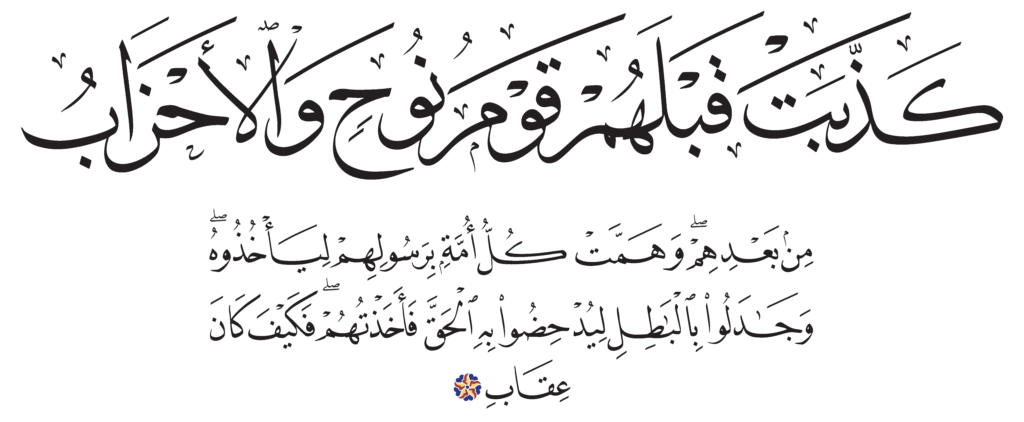 كَذَّبَتْ قَبْلَهُمْ قَوْمُ نُوحٍ وَٱلْأَحْزَابُ
مِنۢ بَعْدِهِمْۖ وَهَمَّتْ كُلُّ أُمَّةٍۭ بِرَسُولِهِمْ لِيَأْخُذُوهُۖ
وَجَٰدَلُوا۟ بِٱلْبَٰطِلِ لِيُدْحِضُوا۟ بِهِ ٱلْحَقَّ فَأَخَذْتُهُمْۖ فَكَيْفَ كَانَ
عِقَابِ